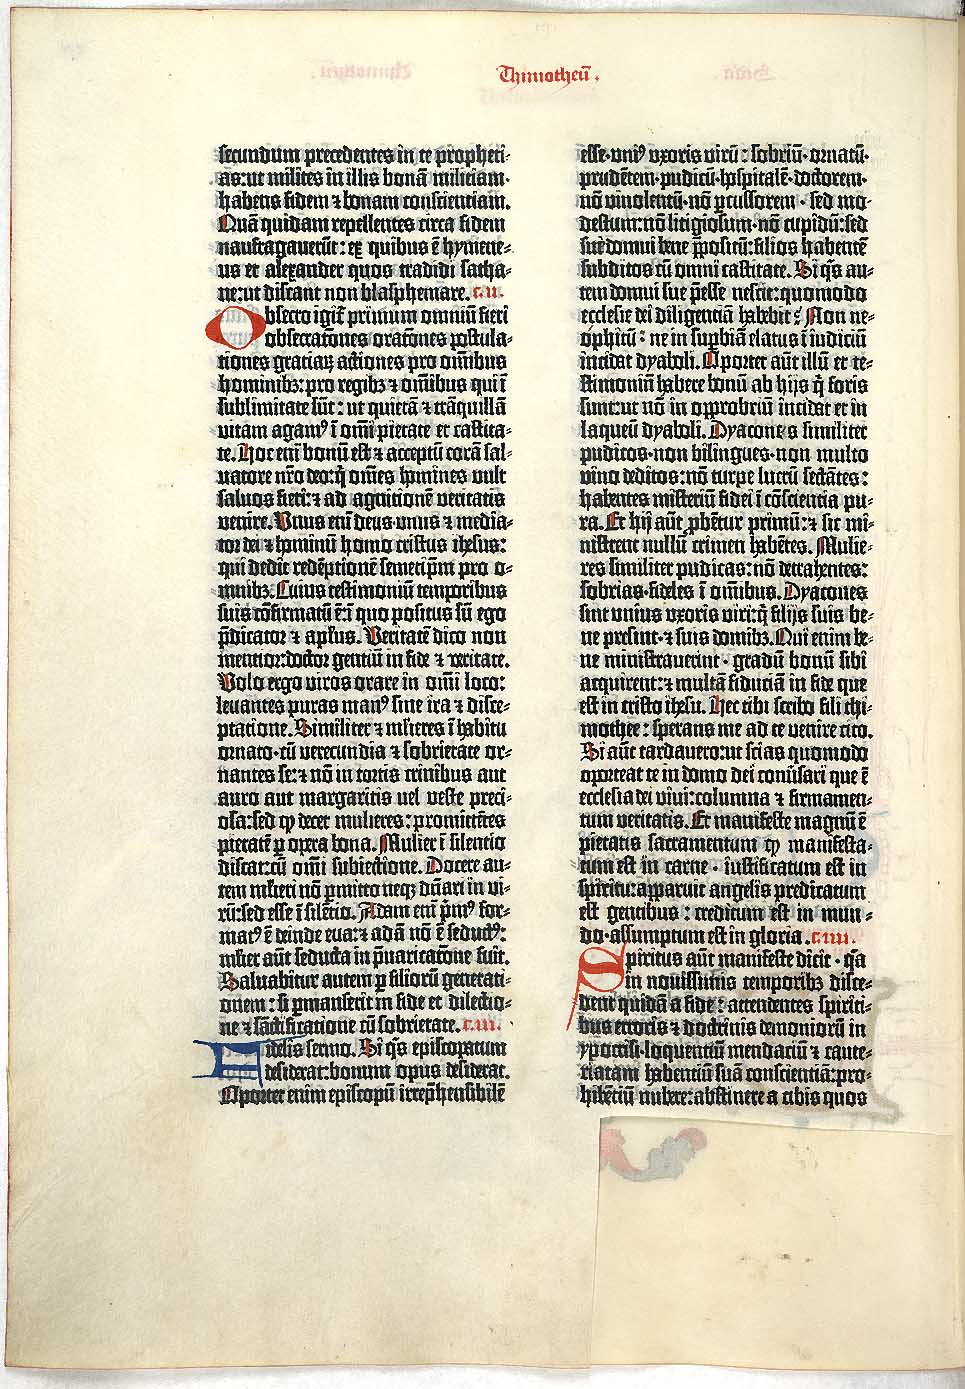 Thimotheū.
secundum precedentes in te propheti-
as: ut milites in illis bonā militiam·
habens fidem ⁊ bonam conscientiam.
Quā quidam repellentes circa fidem
naufragaverūt: ex quibus ē hymene-
us et alexander quos tradidi satha-
ne: ut discant non blasphemare. c.ii.
Obsecro igit̄ primum omniū fieri
obsecratōnes oratōnes postula-
tiones gratiaꝝ actiones pro om̄ibus
hominibꝫ: pro regibꝫ ⁊ om̄ibus qui ī
sublimitate sūt: ut quietā ⁊ trāquillā
vitam agamꝰ ī om̄i pietate et castita-
te. Hoc em̄ bonū est ⁊ acceptū corā sal-
uatore nr̄o deo: q̄ om̄es homines vult
saluos fieri: ⁊ ad agnitionē veritatis
venire. Unus em̄ deus· unus ⁊ media-
tor dei ⁊ hominū homo cristus ihesus:
qui dedit redēptionē semetip̄m pro o-
mnibꝫ. Cuius testimoniū temporibus
suis cōfirmatū ē: ī quo positus sū ego
p̄dicator ⁊ apl̄us. Veritatē dico non
mentior: doctor gentiū in fide ⁊ veritate.
Volo ergo viros orare in om̄i loco:
leuantes puras manꝰ sine ira ⁊ disce-
ptatione. Similiter ⁊ ml̄ieres ī habitu
ornato· cū verecundia ⁊ sobrietate or-
nantes se: ⁊ nō in tortis crinibus aut
auro aut margaritis uel veste preci-
osa: sed qđ decet mulieres: promittētes
pietatē ꝑ opera bona. Mulier ī silentio
discat: cū om̄i subiectione. Docere au-
tem ml̄ieri nō ꝑmitto neqꝫ dn̄ari in vi-
rū: sed esse ī silētio. Adam em̄ p̄mꝰ for-
matꝰ ē deinde eua: ⁊ adā nō ē seductꝰ:
ml̄ier aūt seducta in p̄uaricatōne fuit.
Saluabitur autem ꝑ filiorū generati-
onem: si ꝑmanserit in fide et dilectio-
ne ⁊ sāctificatione cū sobrietate. c.iii.
Fidelis sermo. Si q̄s episcopatum
desiderat: bonum opus desiderat.
Oportet enim episcopū irrep̄hensibilē
esse· uniꝰ uxoris virū: sobriū· ornatū·
prudētem· pudicū· hospitalē· doctorem·
nō vinolentū· nō ꝑcussorem· sed mo-
destum: nō litigiosum· nō cupidū: sed
sue domui bene p̄positū: filios habentē
subditos cū omni castitate. Si q̄s au-
tem domui sue p̄esse nescit: quomodo
ecclesie dei diligentiā habebit? Non ne-
ophitū: ne in suꝑbiā elatus ī iudiciū
incidat dyaboli. Oportet aūt illū et te-
stimoniū habere bonū ab hijs q̄ foris
sunt: ut nō in opprobriū incidat et in
laqueū dyaboli. Dyacones similiter
pudicos· non bilingues· non multo
vino deditos: nō turpe lucrū sectātes:
habentes misteriū fidei ī cōscientia pu-
ra. Et hij aūt ꝓbentur primū: ⁊ sic mi-
nistrent nullū crimen habētes. Mulie-
res similiter pudicas: nō detrahentes:
sobrias· fideles ī om̄ibus. Dyacones
sint unius uxoris viri: q̄ filijs suis be-
ne presint· ⁊ suis domibꝫ. Qui enim be-
ne ministraverint· gradū bonū sibi
acquirent: ⁊ multā fiduciā in fide que
est in cristo ihesu. Hec tibi scribo fili thi-
mothee: sperans me ad te venire cito.
Si aūt tardauero: ut scias quomodo
oporteat te in domo dei conūsari que ē
ecclesia dei vivi: columna ⁊ firmamen-
tum veritatis. Et manifeste magnū ē
pietatis sacramentum qđ manifesta-
tum est in carne· iustificatum est in
spiritu: apparuit angelis predicatum
est gentibus: creditum est in mun-
do· assumptum est in gloria. c.iiii.
Spiritus aūt manifeste dicit· q̄a
in novissimis temporibꝫ disce-
dent quidā a fide: attendentes spiriti-
bus erroris ⁊ doctrinis demoniorū in
ypocrisi· loquentiū mendaciū ⁊ caute-
riatam habentiū suā conscientiā: pro-
hibētiū nubere: abstinere a cibis quos